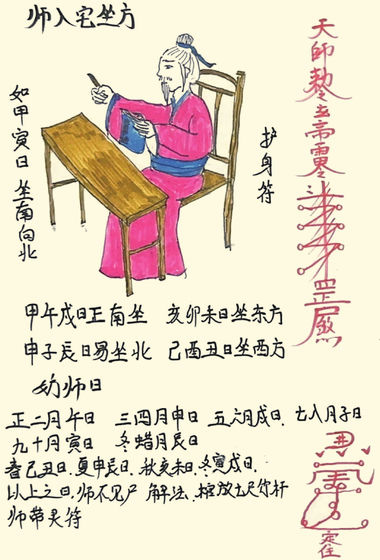 师入宅坐方
如甲寅日 坐南向北
护身符
天師
甲午戌日正南坐 亥卯未日坐东方
申子辰日易坐北 己酉丑日坐西方
幼师日
正二月午日 三四月申日 五六月戌日、七八月子日
九十月寅日 冬蜡月辰日
春己丑日、夏申辰日、秋亥未日、冬寅戌日、
以上之日、师不见尸 解法、棺放七尺竹杆
师带灵符